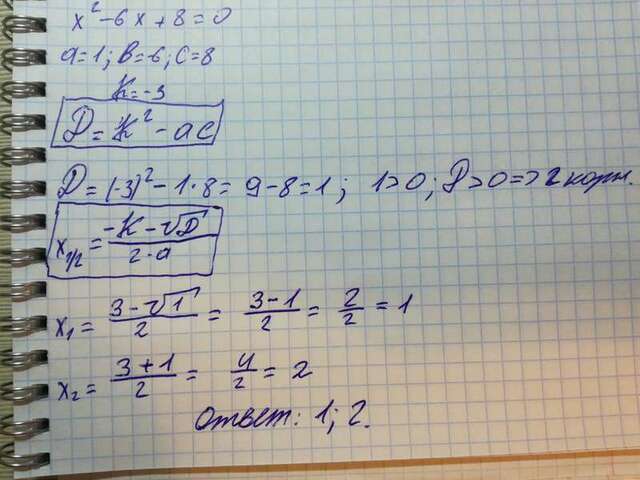 x² - 6x + 8 = 0
a = 1; b = -6; c = 8
K = -3
D = K² - ac
D = (-3)² - 1 · 8 = 9 - 8 = 1; 1 > 0; D > 0 => 2 корн.
x₁/₂ = (-K - √D)/(2 · a)
x₁ = (3 - √1)/2 = (3 - 1)/2 = 2/2 = 1
x₂ = (3 + 1)/2 = 4/2 = 2
Ответ: 1; 2.